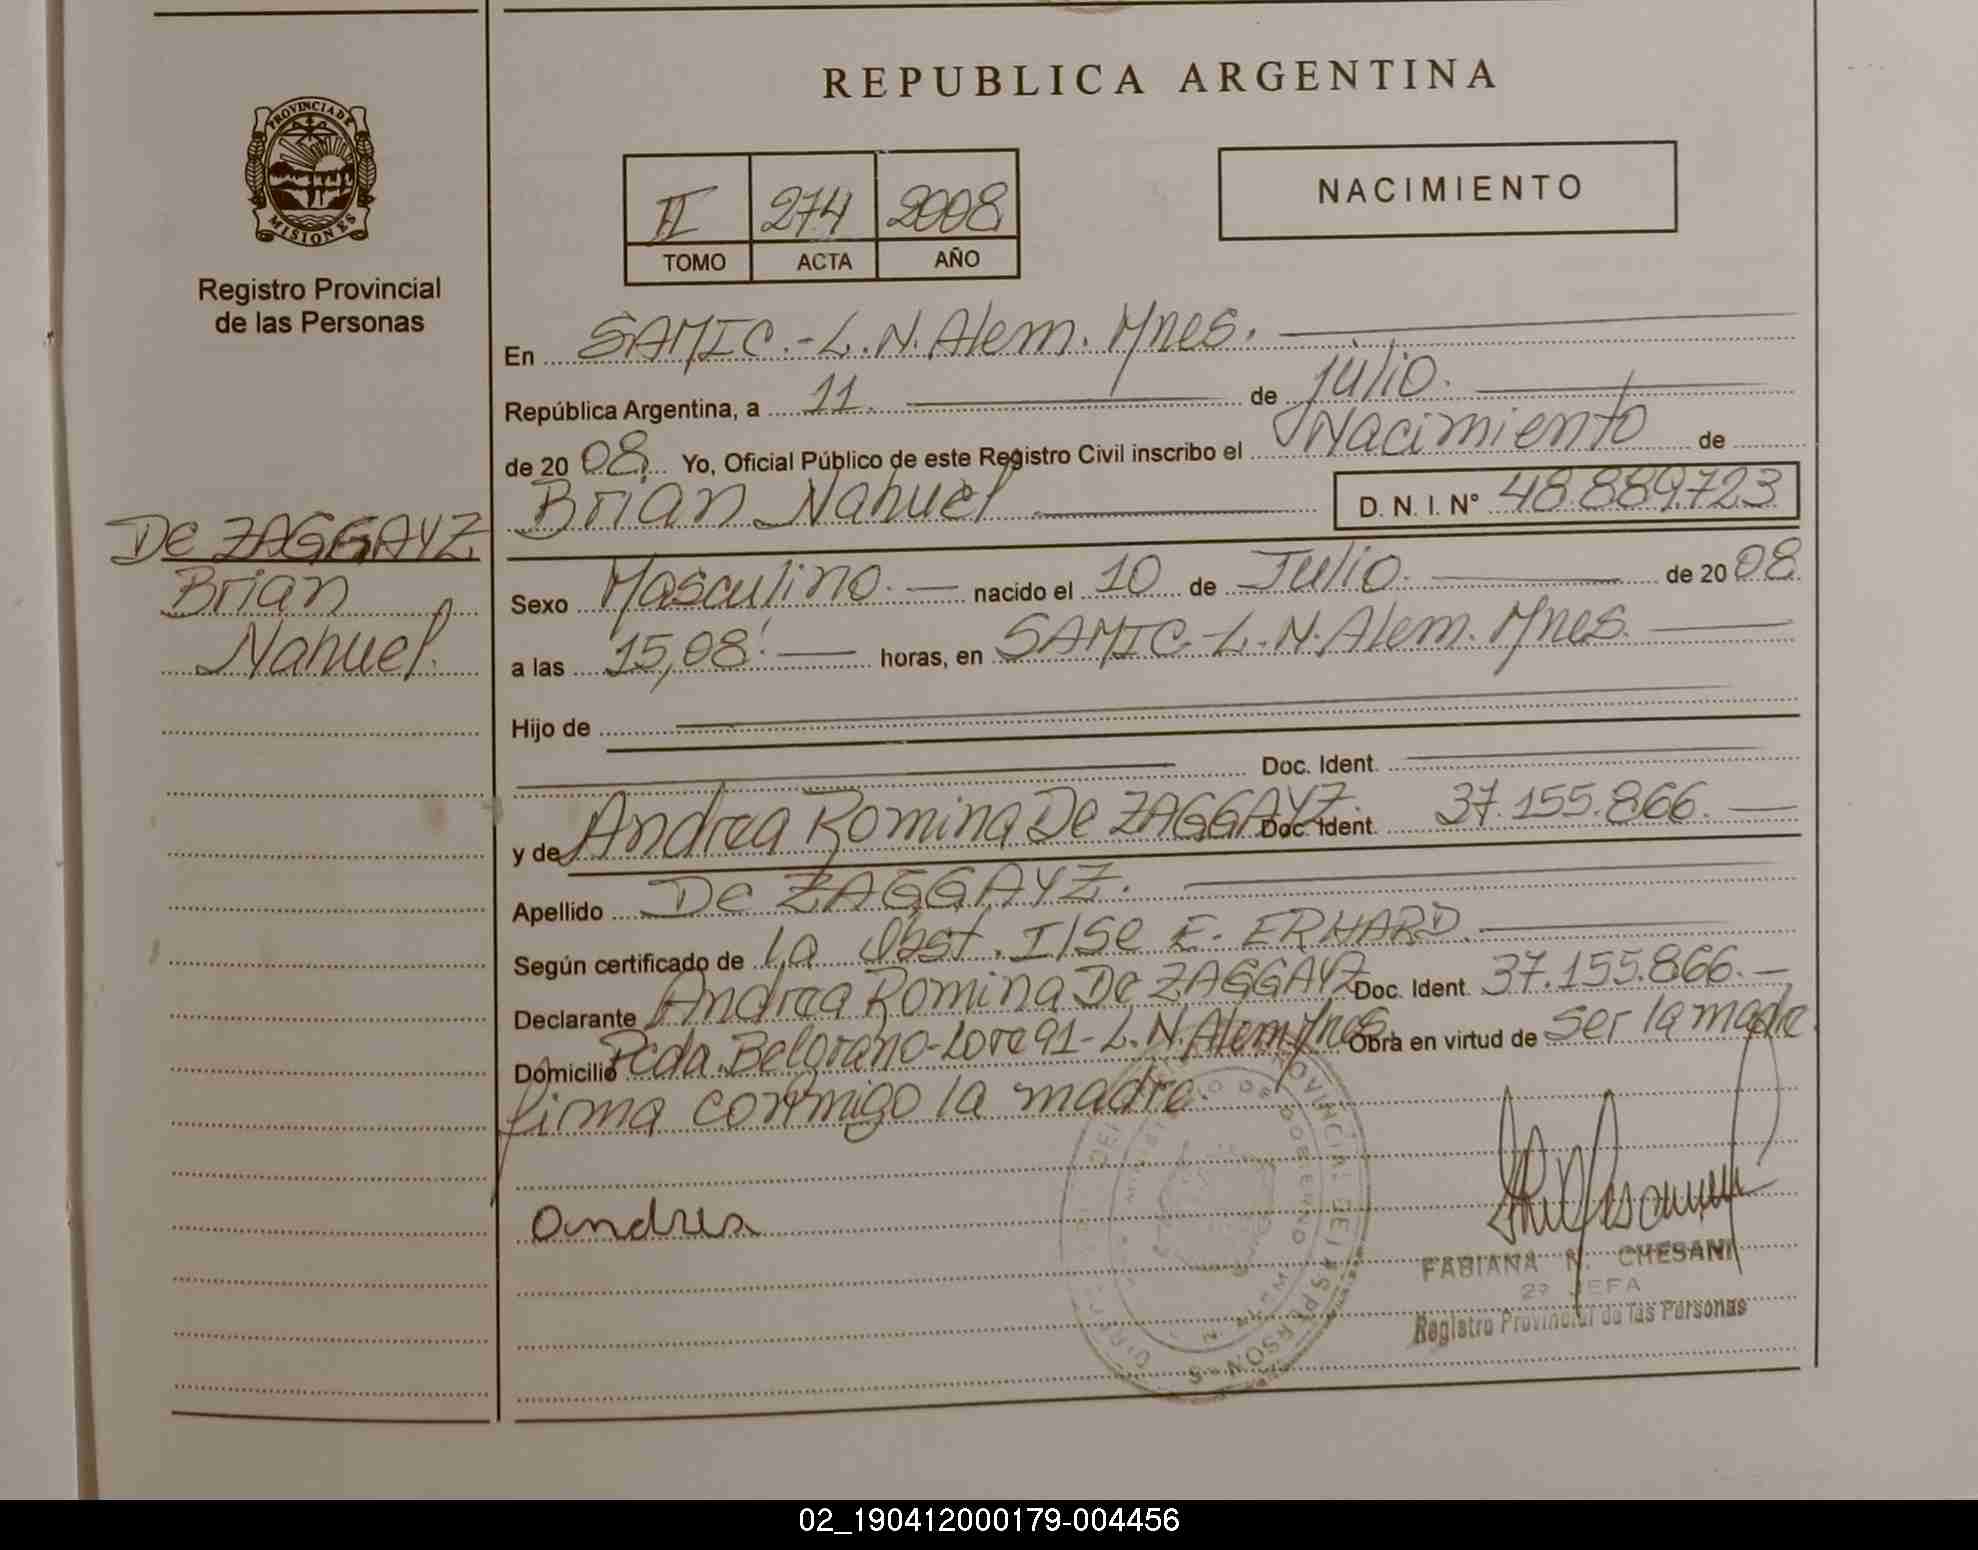 REPUBLICA ARGENTINA
PROVINCIA DE
MISIONES
Registro Provincial
de las Personas
II 274 2008
TOMO ACTA AÑO
NACIMIENTO
En SAMIC.-L.N.Alem.Mnes.
República Argentina, a 11. de julio.
de 20 08. Yo, Oficial Público de este Registro Civil inscribo el Nacimiento de
Brian Nahuel D. N. I. N° 48.889.723
De ZAGGAYZ
Brian
Nahuel.
Sexo Masculino. nacido el 10 de Julio. de 20 08.
a las 15,08. horas, en SAMIC.-L.N.Alem.Mnes.
Hijo de
Doc. Ident.
y de Andrea Romina De ZAGGAYZ. Doc. Ident. 37.155.866.
Apellido De ZAGGAYZ.
Según certificado de La Obst. Ilse E. ERHARD.
Declarante Andrea Romina De ZAGGAYZ Doc. Ident. 37.155.866.
Domicilio Pcda.Belgrano-Lote 91-L.N.Alem Mnes. Obra en virtud de ser la madre.
firma conmigo la madre.
Andrea
FABIANA N. CHESANI
2º JEFA
Registro Provincial de las Personas
02_190412000179-004456